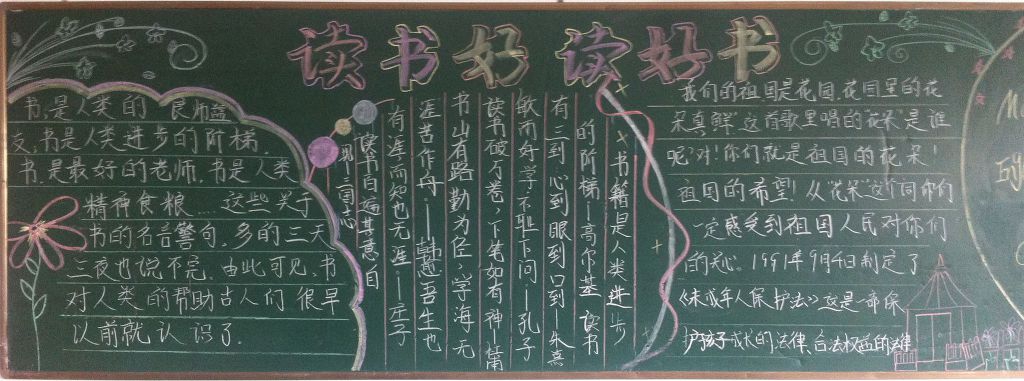 读书好 读好书
书,是人类的 良师益
友,书是人类进步的阶梯,
书,是最好的老师,书是人类
精神食粮...这些关于
书的名言警句,多的三天
三夜也说不完,由此可见,书
对人类的帮助古人们很早
以前就认识了.
书籍是人类进步
的阶梯—高尔基 读书
有三到 心到眼到口到—朱熹
敏而好学不耻下问—孔子
读书破万卷,下笔如有神
书山有路勤为径,学海无
涯苦作舟.—韩愈 吾生也
有涯而知也无涯.—庄子
读书百遍其意自
现.三国志
我们的祖国是花园,花园里的花
朵真鲜.这首歌里唱的花朵是谁
呢?对!你们就是祖国的花朵!
祖国的希望!从"花朵"这个词你们
一定感受到祖国人民对你们
的关心。1991年9月4日制定了
《未成年人保护法》这是一部保
护孩子成长的法律,合法权益的法律